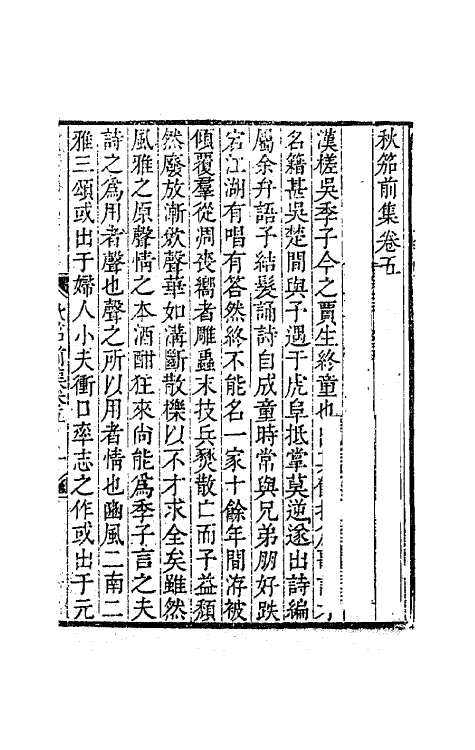 秋笳前集卷五
漢槎吳季子今之賈生終童也
名籍甚吳楚間與予遇于虎阜抵掌莫逆遂出詩編
屬余弁語予結髮誦詩自成童時常與兄弟朋好跌
宕江湖有唱有答然終不能名一家十餘年間洊被
傾覆羣從凋喪嚮者雕蟲末技兵燹散亡而予益頹
然廢放漸敛聲華如溝斷散櫟以不才求全矣雖然
風雅之原聲情之本酒酣狂來尚能爲季子言之夫
詩之爲用者聲也聲之所以用者情也豳風二南二
雅三頌或出于婦人小夫衝口率志之作或出于元